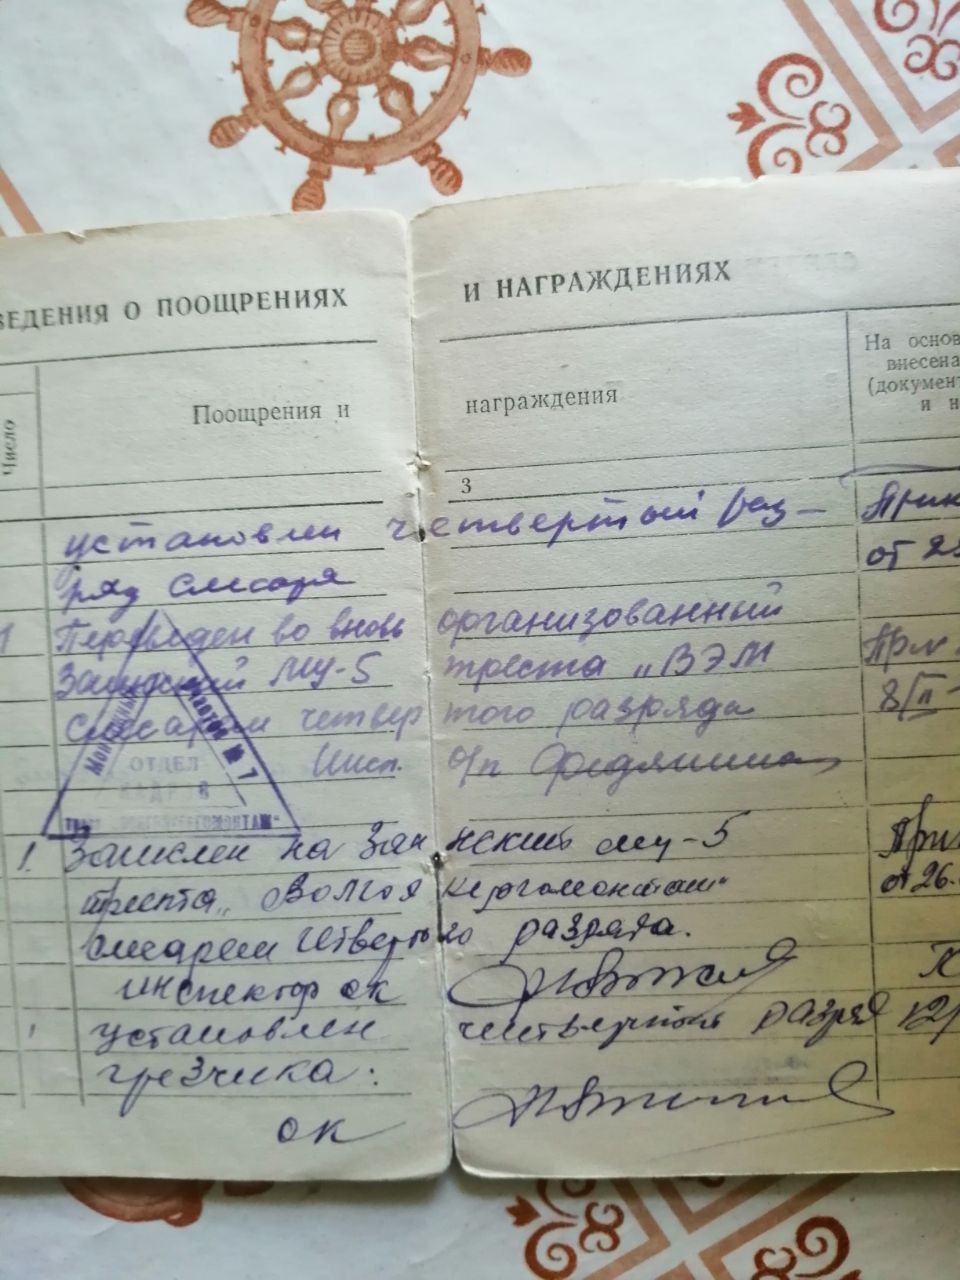 ВЕДЕНИЯ О ПООЩРЕНИЯХ И НАГРАЖДЕНИЯХ
Число
Поощрения и награждения
На основ
внесена
(документ
и н
3
установлен четвертый раз-
ряд слесаря
Прик
от 22
Переведен во вновь организованный
Заинский МУ-5 треста „ВЭМ
слесарем четвертого разряда
Инсп. о/п
При
8/II
ОТДЕЛ
КАДРОВ
№ 7
Зачислен на Заинский му-5
треста „Волгоэнергомонтаж"
слесарем четвертого разряда.
инспектор ок
При
от 26.
установлен четвертый разряд
грезчика.
12/
ок